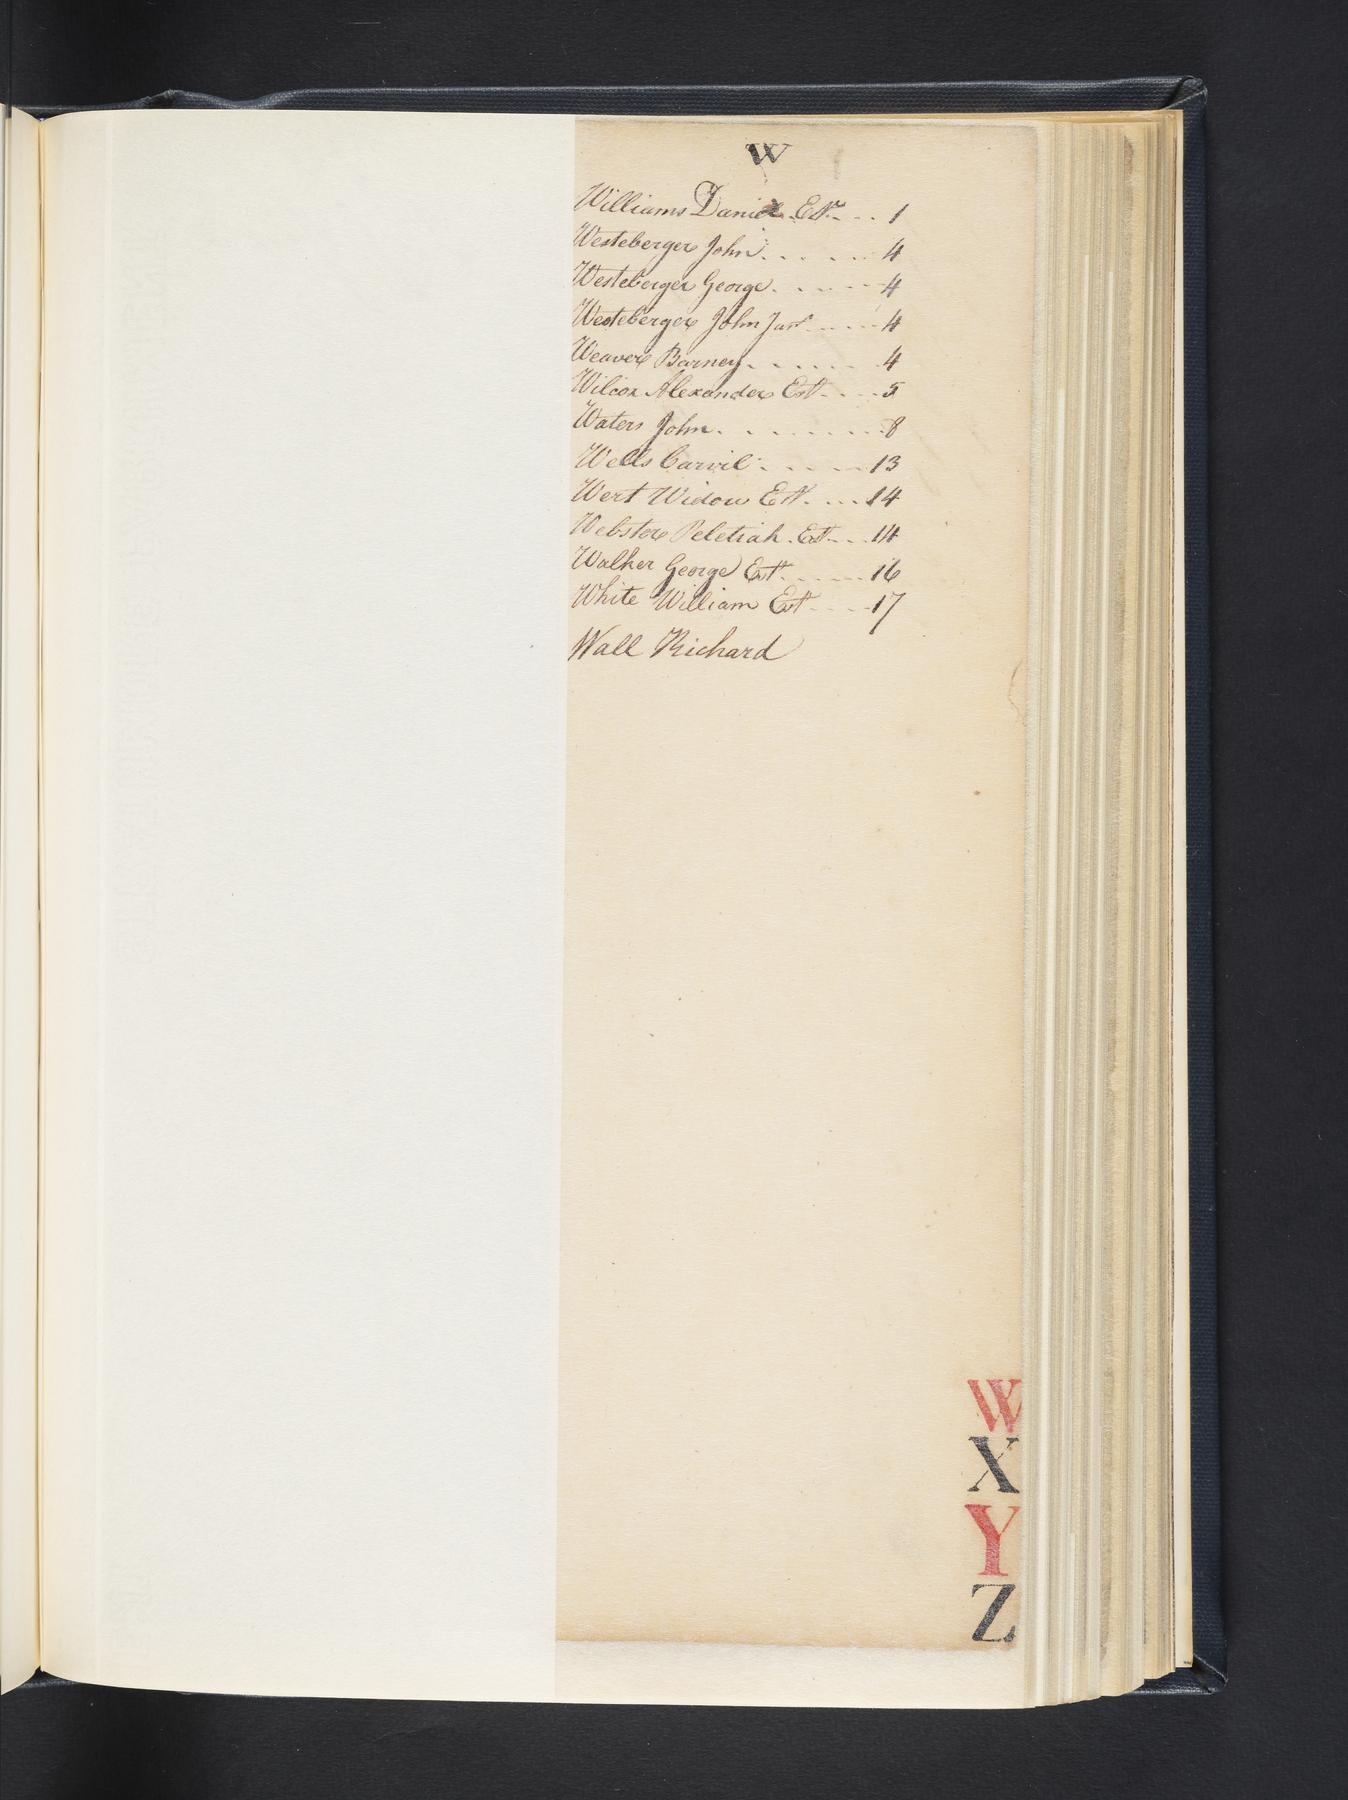 W
Williams Daniel Est. . . . 1
Westeberger John . . . . . 4
Westeberger George . . . . . 4
Westeberger John Junr . . . . . 4
Weaver Barney . . . . . . 4
Wilcox Alexander Est . . . . 5
Waters John . . . . . . . . 8
Wells Carvil . . . . . . 13
Wert Widow Est. . . . 14
Webster Peletiah . Est. . . . 14
Walker George Est. . . . . . 16
White William Est . . . . 17
Wall Richard
W
X
Y
Z